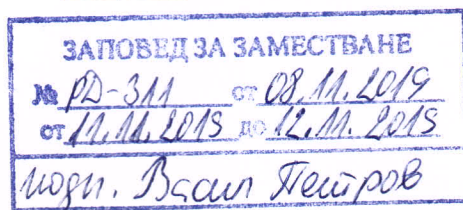 ЗАПОВЕД ЗА ЗАМЕСТВАНЕ
№ РД-311 от 08.11.2019
от 11.11.2019 до 12.11.2019
подп. Васил Петров